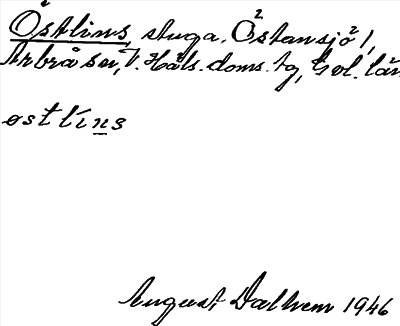 Östlins, stuga. Östansjö 1,
Arbrå sn, V. Häls. doms. tg, Gvl. län
östlins
August Dalhem 1946